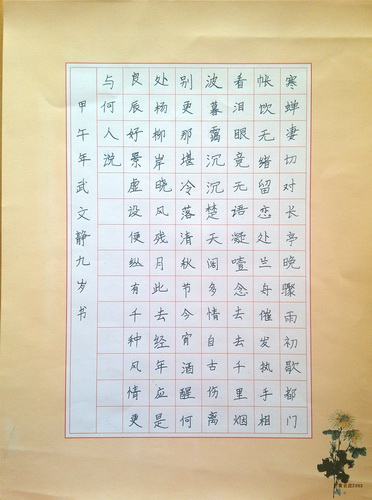 寒蝉凄切对长亭晚骤雨初歇都门
帐饮无绪留恋处兰舟催发执手相
看泪眼竟无语凝噎念去去千里烟
波暮霭沉沉楚天阔多情自古伤离
别更那堪冷落清秋节今宵酒醒何
处杨柳岸晓风残月此去经年应是
良辰好景虚设便纵有千种风情更
与何人说
甲午年武文静九岁书